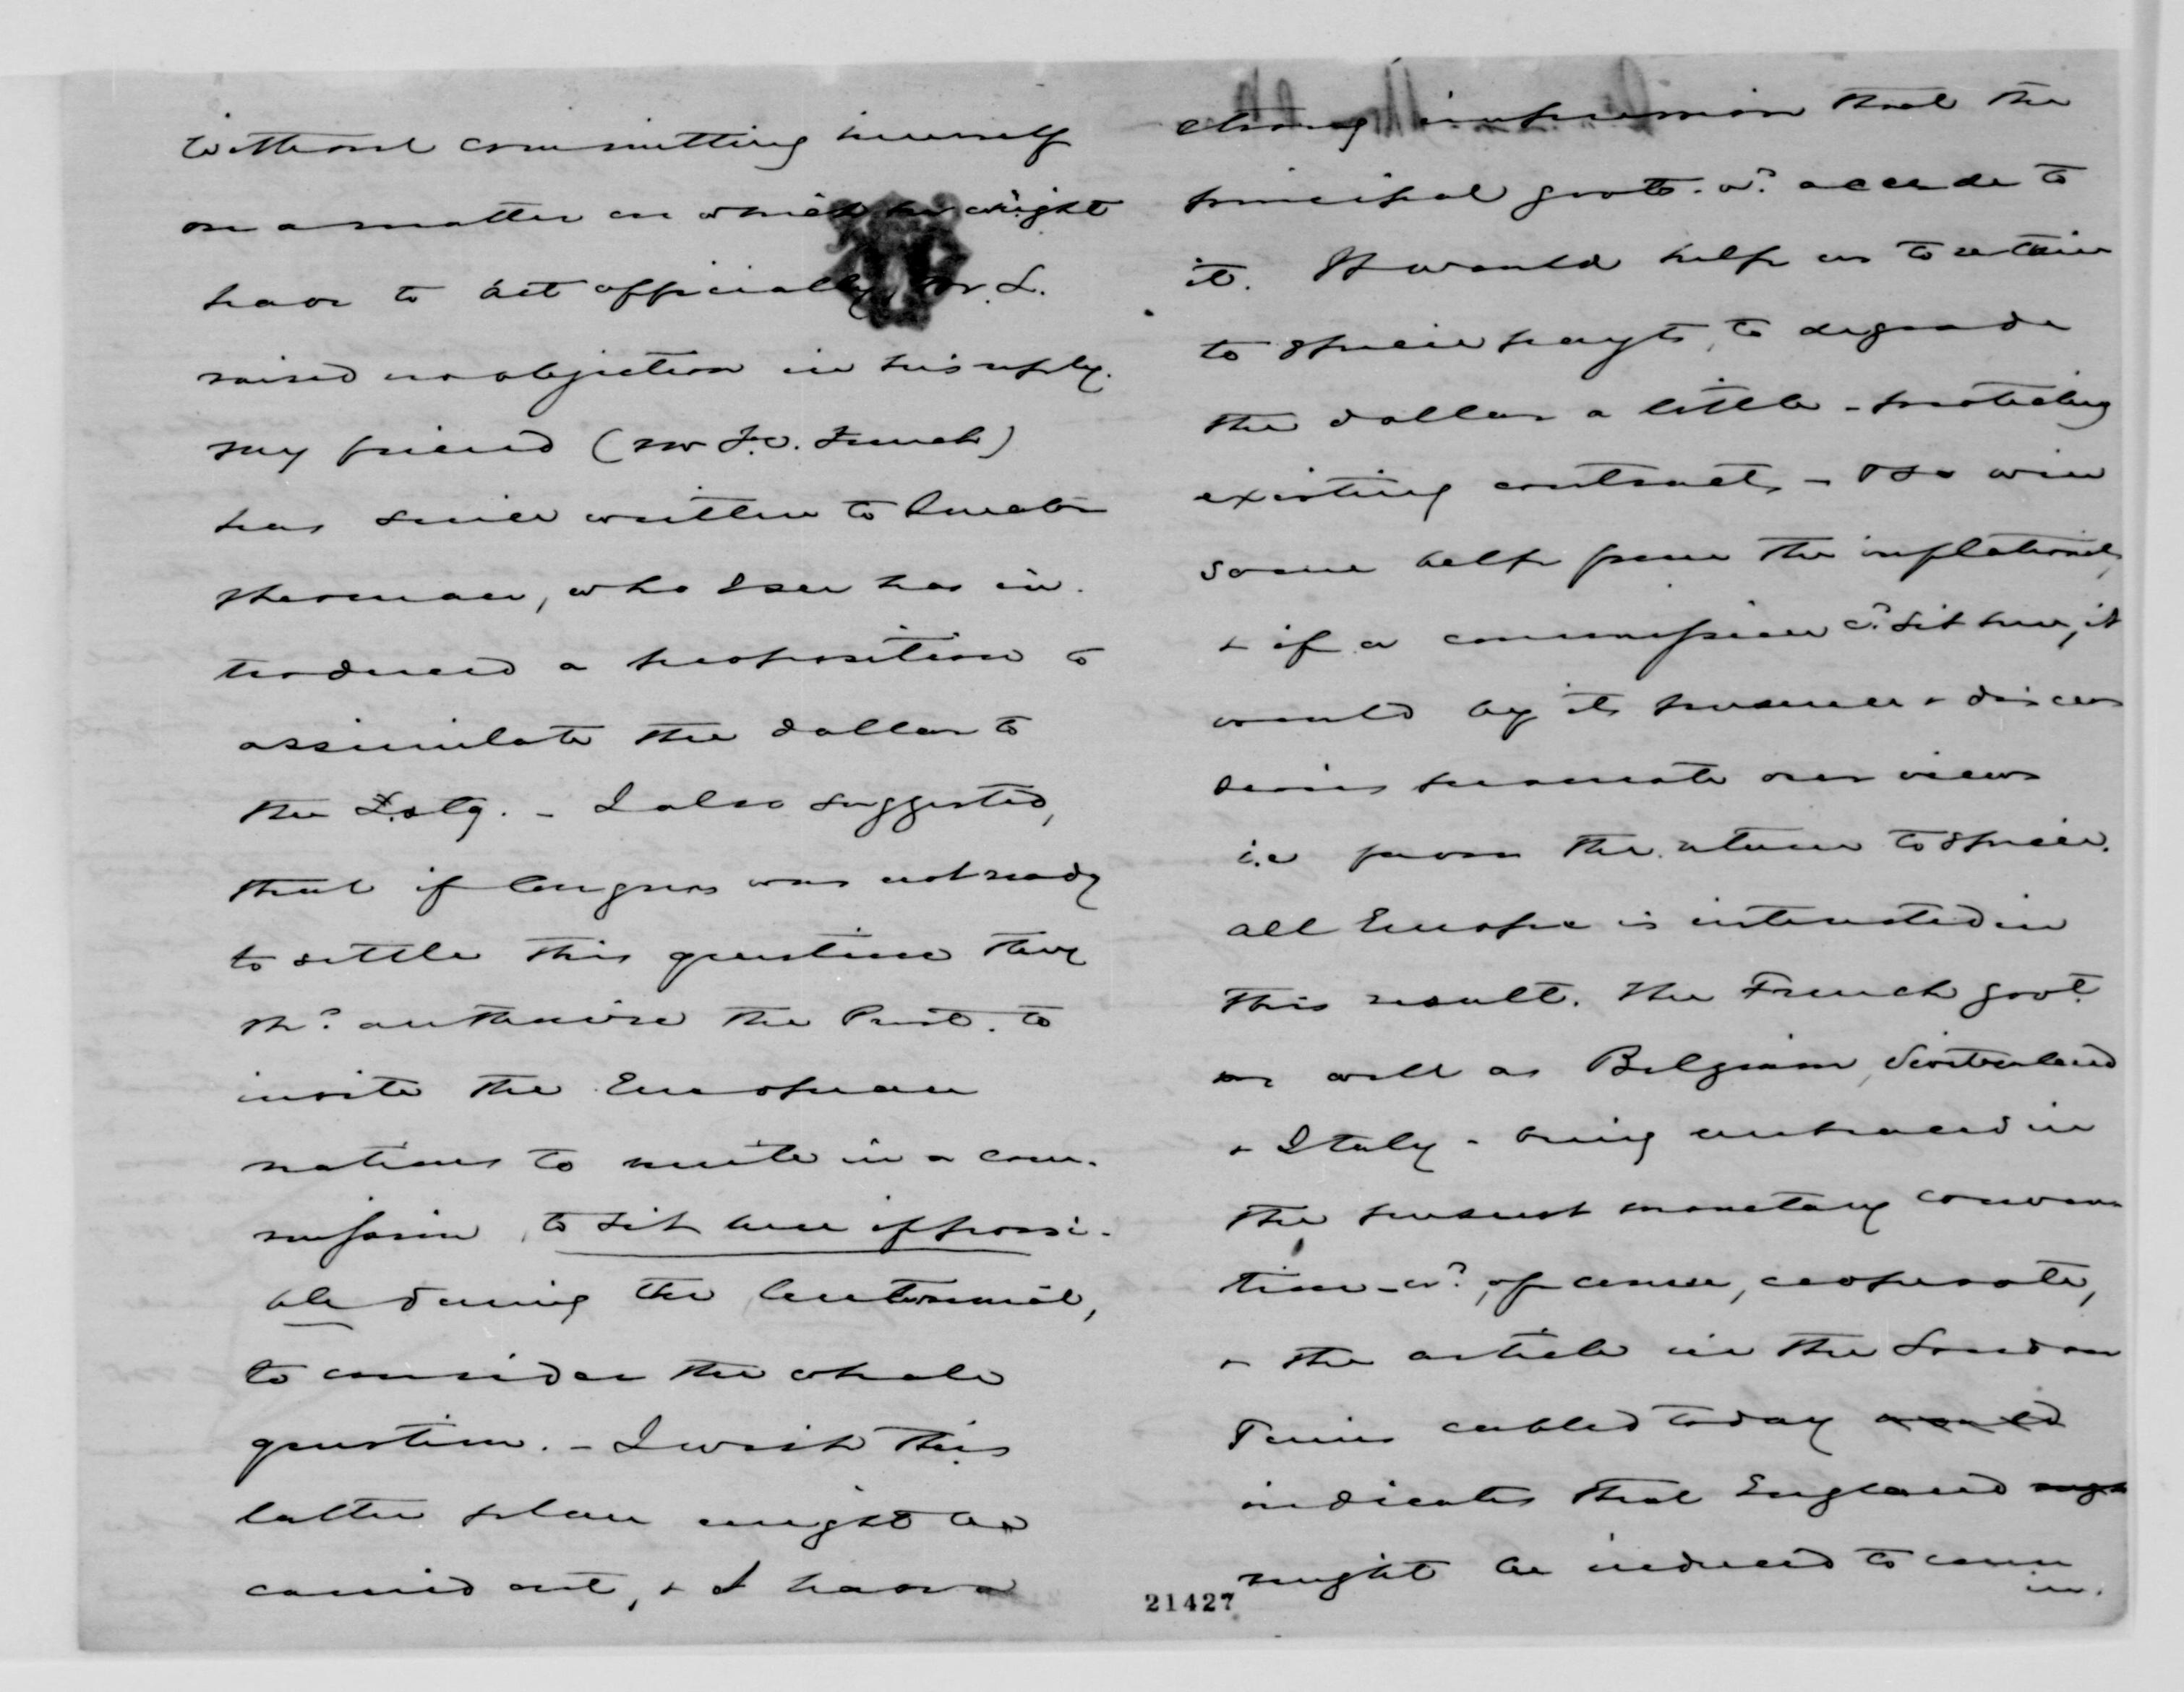 without committing himself
on a matter on which he might
have to act officially, Mr. L.
raised no objection in his reply.
My friend (Mr F.O. French)
has since written to Senator
Sherman, who I see has in-
troduced a proposition to
assimilate the dollar to
the £.stg. - I also suggested,
that if Congress was not ready
to settle this question they
shd. authorise the Prest. to
invite the European
nations to unite in a com-
mission, to sit here if possi-
ble during the Centennial,
to consider the whole
question. - I wish this
latter plan might be
carried out, & I have a
strong impression that the
principal govts. wd. accede to
it. It would help us to return
to specie payts, to degrade
the dollar a little - protecting
existing contracts - & so win
some help from the inflationists,
& if a commission cd. sit here, it
would by its presence & discus
sions promote our views
i.e favor the return to specie.
All Europe is interested in
this result. The French govt.
as well as Belgium, Switzerland
& Italy - being embraced in
the present monetary conven
tion - wd., of course, cooperate,
& the article in the London
Times cabled today would
indicates that England migh
might be induced to come
in.
21427